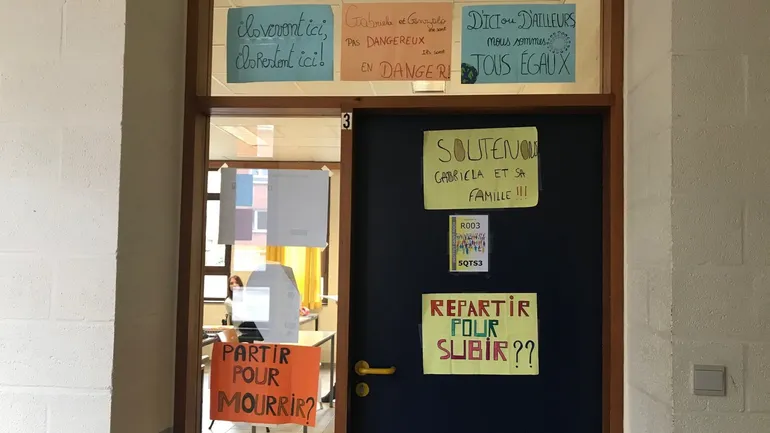 ils veront ici,
ils Restont ici!
Gabriela et
PAS DANGEREUX
ils sont
EN DANGER!
D'ICI OU D'AILLEURS
nous sommes
TOUS ÉGAUX
3
SOUTENONS
GABRIELA ET SA
FAMILLE!!!
R003
5QTS3
REPARTIR
POUR
SUBIR??
PARTIR
POUR
MOURRIR?